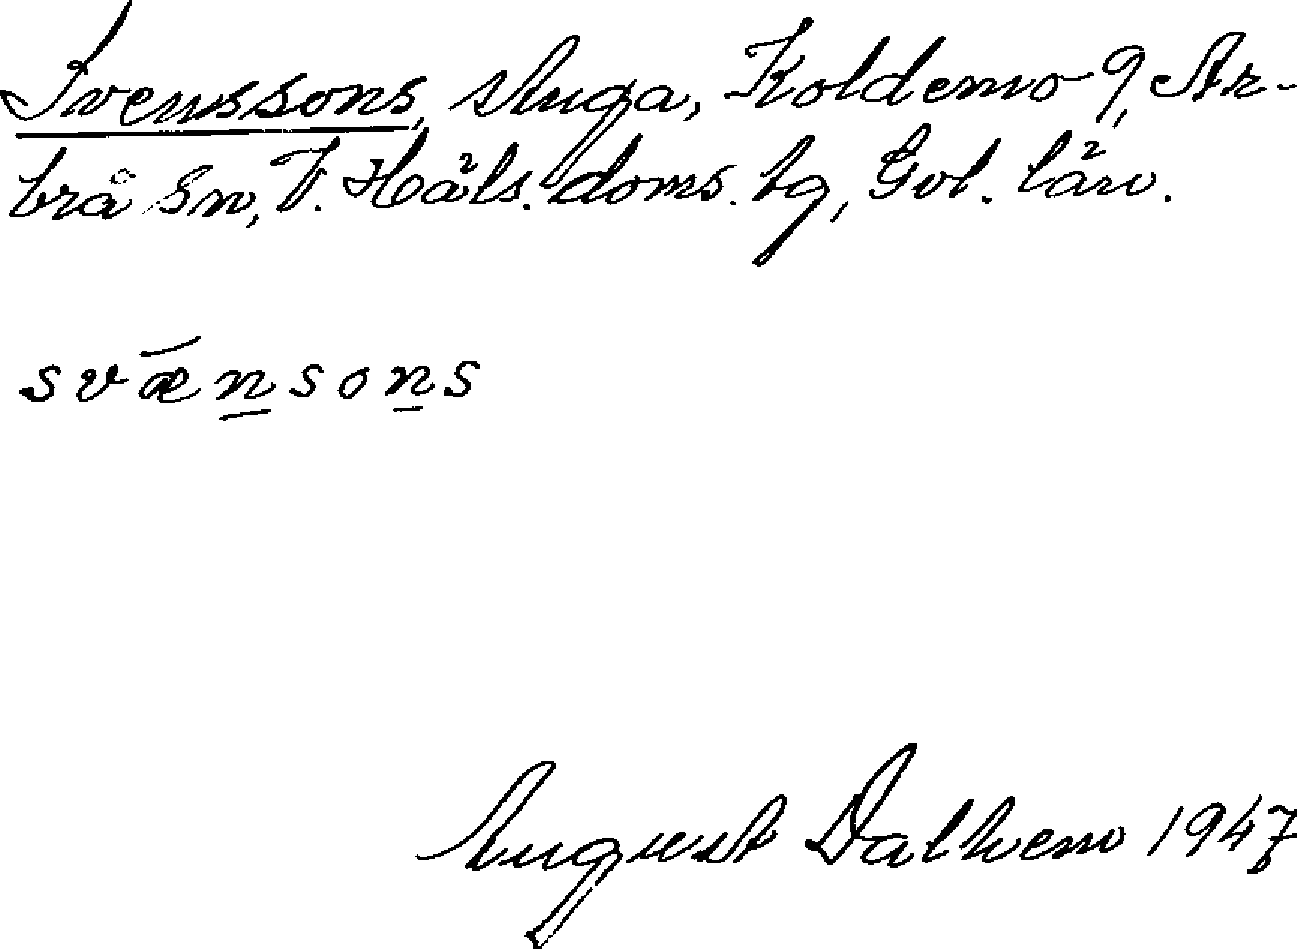 Svenssons, stuga, Koldemo 9, Ar-
brå sn, V. Häls. doms. hg, Gvl. län.
svǣn̲son̲s
August Dalhem 1947